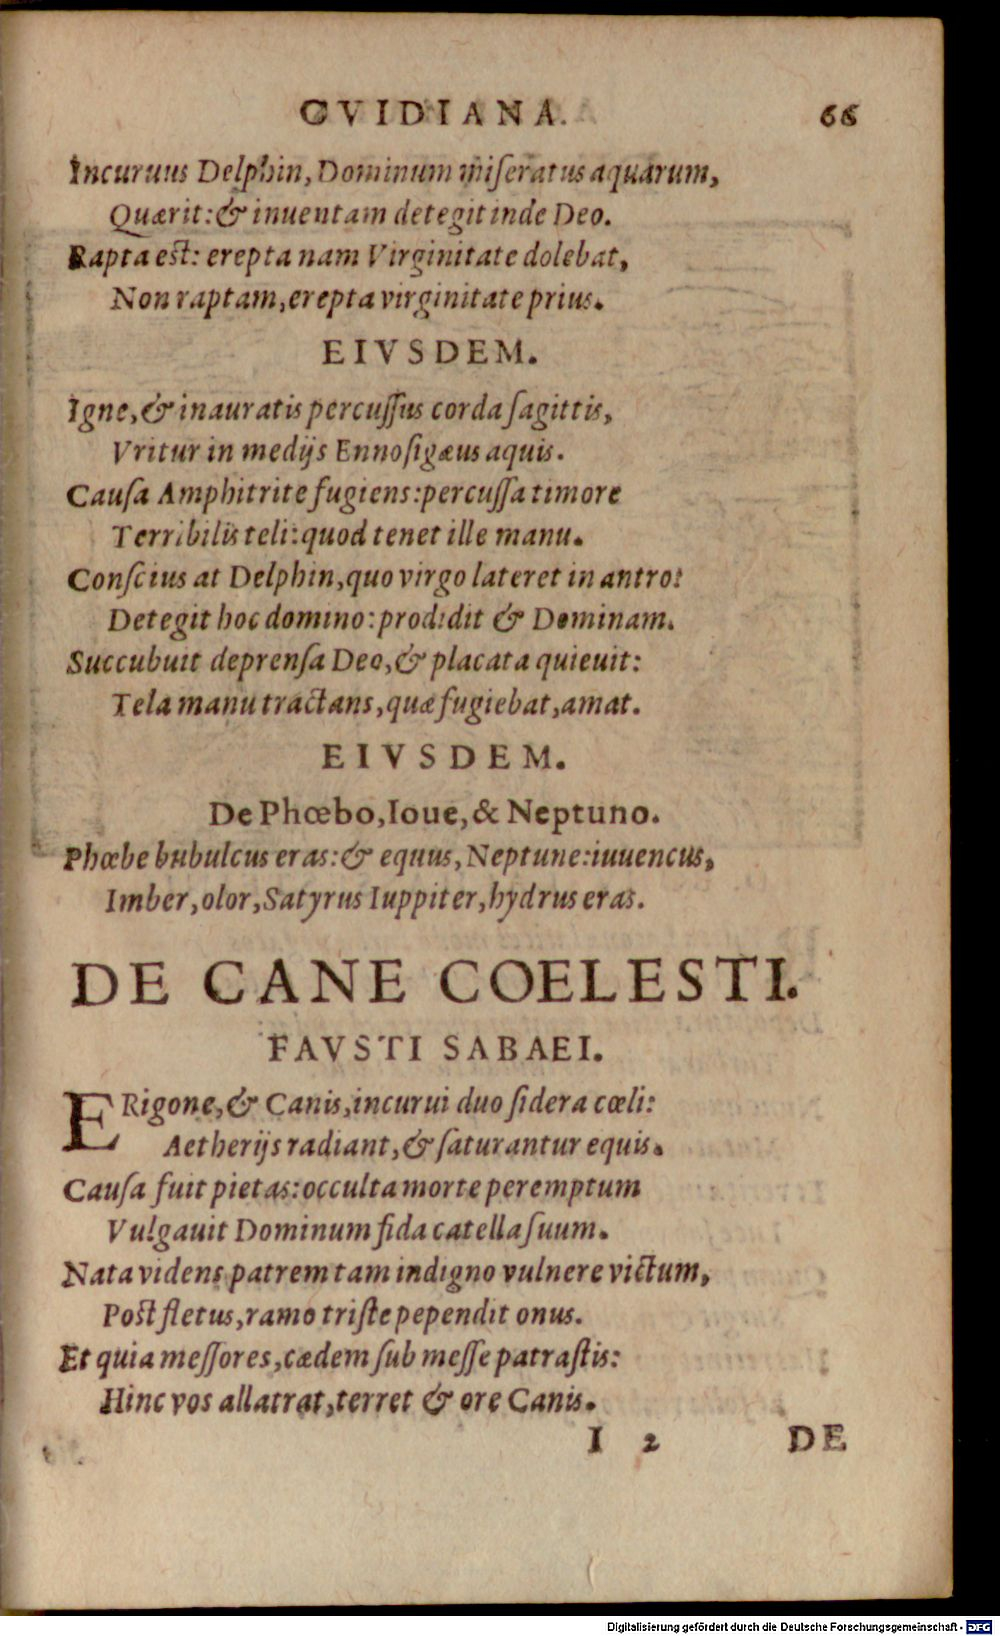 GVIDIANA. 66
Incuruus Delphin, Dominum miſeratus aquarum,
Quærit: & inuentam detegit inde Deo.
Rapta eſt: erepta nam Virginitate dolebat,
Non raptam, erepta virginitate prius.
EIVSDEM.
Igne, & inauratis percuſſus corda ſagittis,
Vritur in medijs Ennoſigæus aquis.
Cauſa Amphitrite fugiens: percuſſa timore
Terribilis teli: quod tenet ille manu.
Conſcius at Delphin, quo virgo lateret in antro:
Detegit hoc domino: prodidit & Dominam.
Succubuit deprenſa Deo, & placata quieuit:
Tela manu tractans, quæ fugiebat, amat.
EIVSDEM.
De Phœbo, Ioue, & Neptuno.
Phœbe bubulcus eras: & equus, Neptune: iuuencus,
Imber, olor, Satyrus Iuppiter, hydrus eras.
DE CANE COELESTI.
FAVSTI SABAEI.
ERigone, & Canis, incurui duo ſidera cœli:
Aetherijs radiant, & ſaturantur equis.
Cauſa fuit pietas: occulta morte peremptum
Vulgauit Dominum fida catella ſuum.
Nata videns patrem tam indigno vulnere victum,
Poſt fletus, ramo triſte pependit onus.
Et quia meſſores, cædem ſub meſſe patraſtis:
Hinc vos allatrat, terret & ore Canis.
I 2 DE
Digitalisierung gefördert durch die Deutsche Forschungsgemeinschaft - DFG